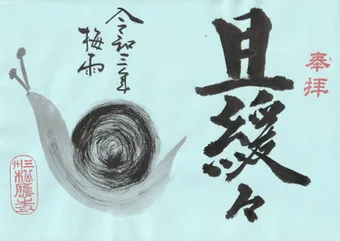 奉拝
且緩々
令和三年
梅雨
三州